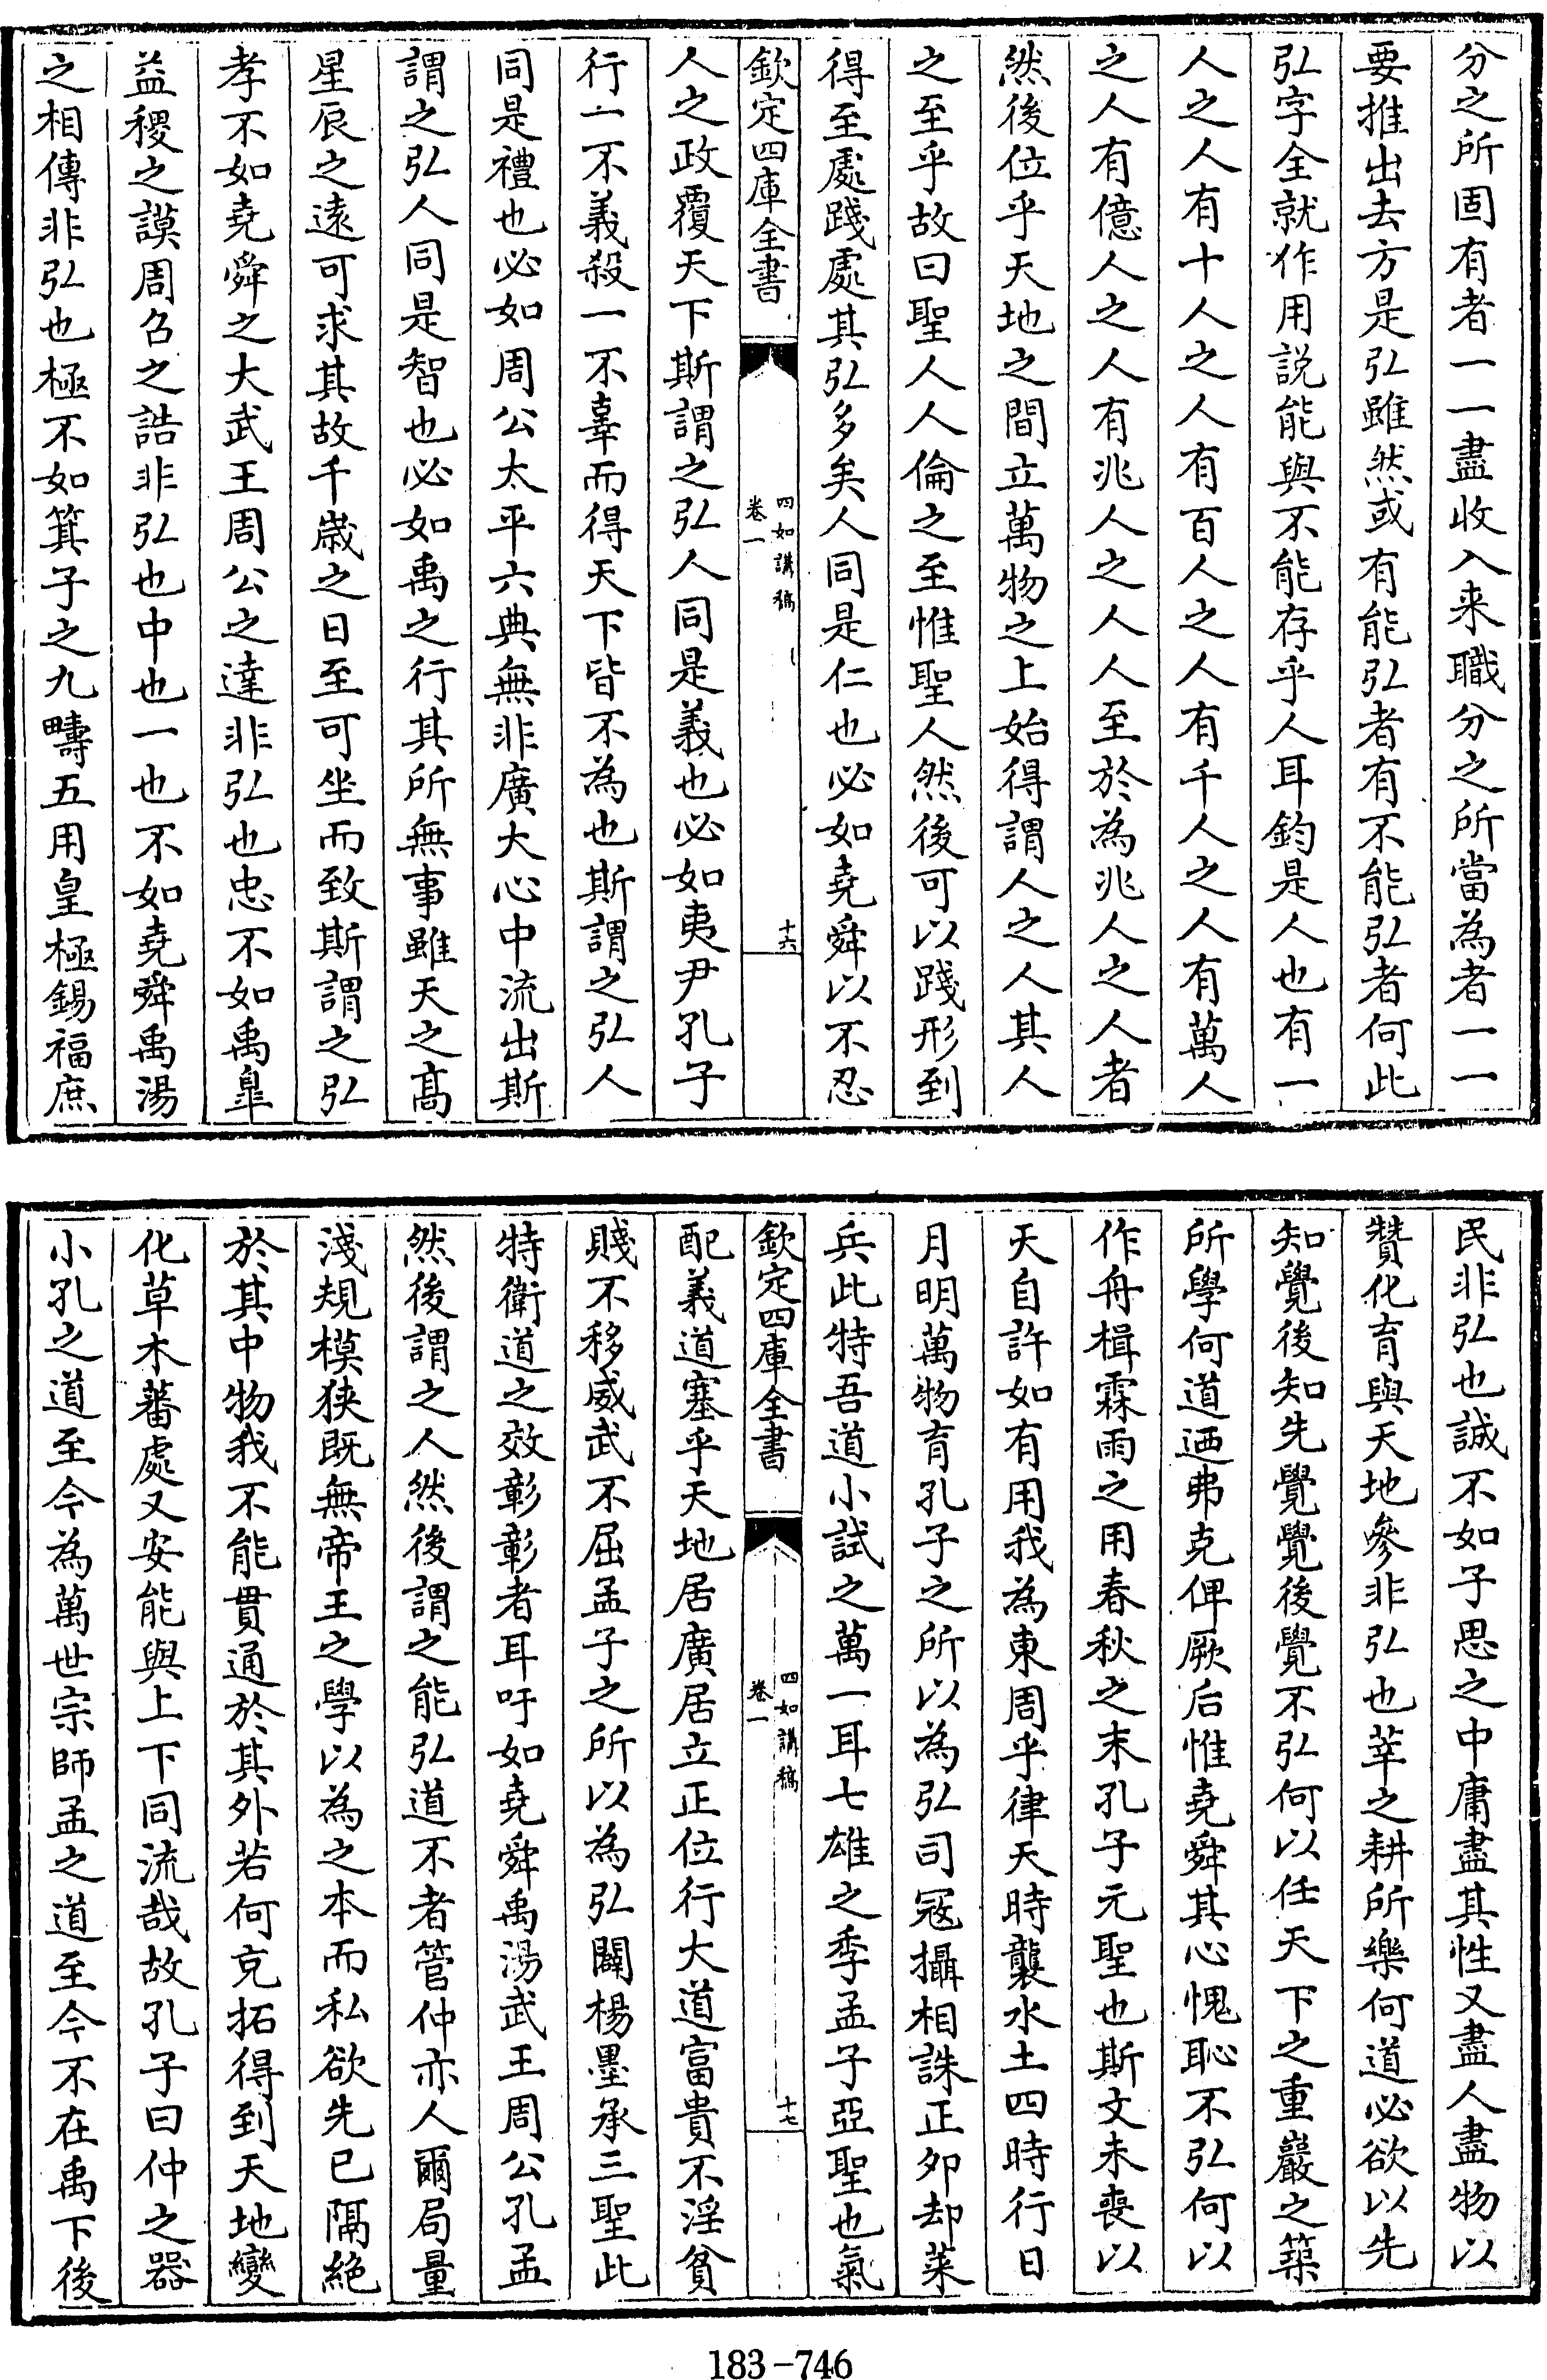 分之所固有者一一盡收入来職分之所當為者一一
要推出去方是弘雖然或有能弘者有不能弘者何此
弘字全就作用説能與不能存乎人耳鈞是人也有一
人之人有十人之人有百人之人有千人之人有萬人
之人有億人之人有兆人之人人至於為兆人之人者
然後位乎天地之間立萬物之上始得謂人之人其人
之至乎故曰聖人人倫之至惟聖人然後可以踐形到
得至處踐處其弘多矣人同是仁也必如堯舜以不忍
欽定四庫全書
四如講稿
卷一
十六
人之政覆天下斯謂之弘人同是義也必如夷尹孔子
行一不義殺一不辜而得天下皆不為也斯謂之弘人
同是禮也必如周公太平六典無非廣大心中流出斯
謂之弘人同是智也必如禹之行其所無事雖天之髙
星辰之遠可求其故千嵗之日至可坐而致斯謂之弘
孝不如堯舜之大武王周公之達非弘也忠不如禹臯
益稷之謨周召之誥非弘也中也一也不如堯舜禹湯
之相傳非弘也極不如箕子之九疇五用皇極錫福庶
民非弘也誠不如子思之中庸盡其性又盡人盡物以
贊化育與天地參非弘也莘之耕所樂何道必欲以先
知覺後知先覺覺後覺不弘何以任天下之重巖之築
所學何道迺弗克俾厥后惟堯舜其心愧恥不弘何以
作舟楫霖雨之用春秋之末孔子元聖也斯文未喪以
天自許如有用我為東周乎律天時襲水土四時行日
月明萬物育孔子之所以為弘司冦攝相誅正夘却萊
兵此特吾道小試之萬一耳七雄之季孟子亞聖也氣
欽定四庫全書
四如講稿
卷一
十七
配義道塞乎天地居廣居立正位行大道富貴不淫貧
賤不移威武不屈孟子之所以為弘闢楊墨承三聖此
特衛道之效彰彰者耳吁如堯舜禹湯武王周公孔孟
然後謂之人然後謂之能弘道不者管仲亦人爾局量
淺規模狹既無帝王之學以為之本而私欲先已隔絶
於其中物我不能貫通於其外若何克拓得到天地變
化草木蕃處又安能與上下同流哉故孔子曰仲之器
小孔之道至今為萬世宗師孟之道至今不在禹下後
183-746